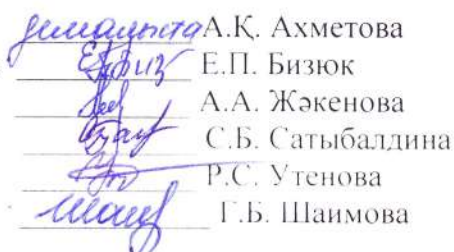 демалыста А.Қ. Ахметова
Е.П. Бизюк
А.А. Жәкенова
С.Б. Сатыбалдина
Р.С. Утенова
Г.Б. Шаимова